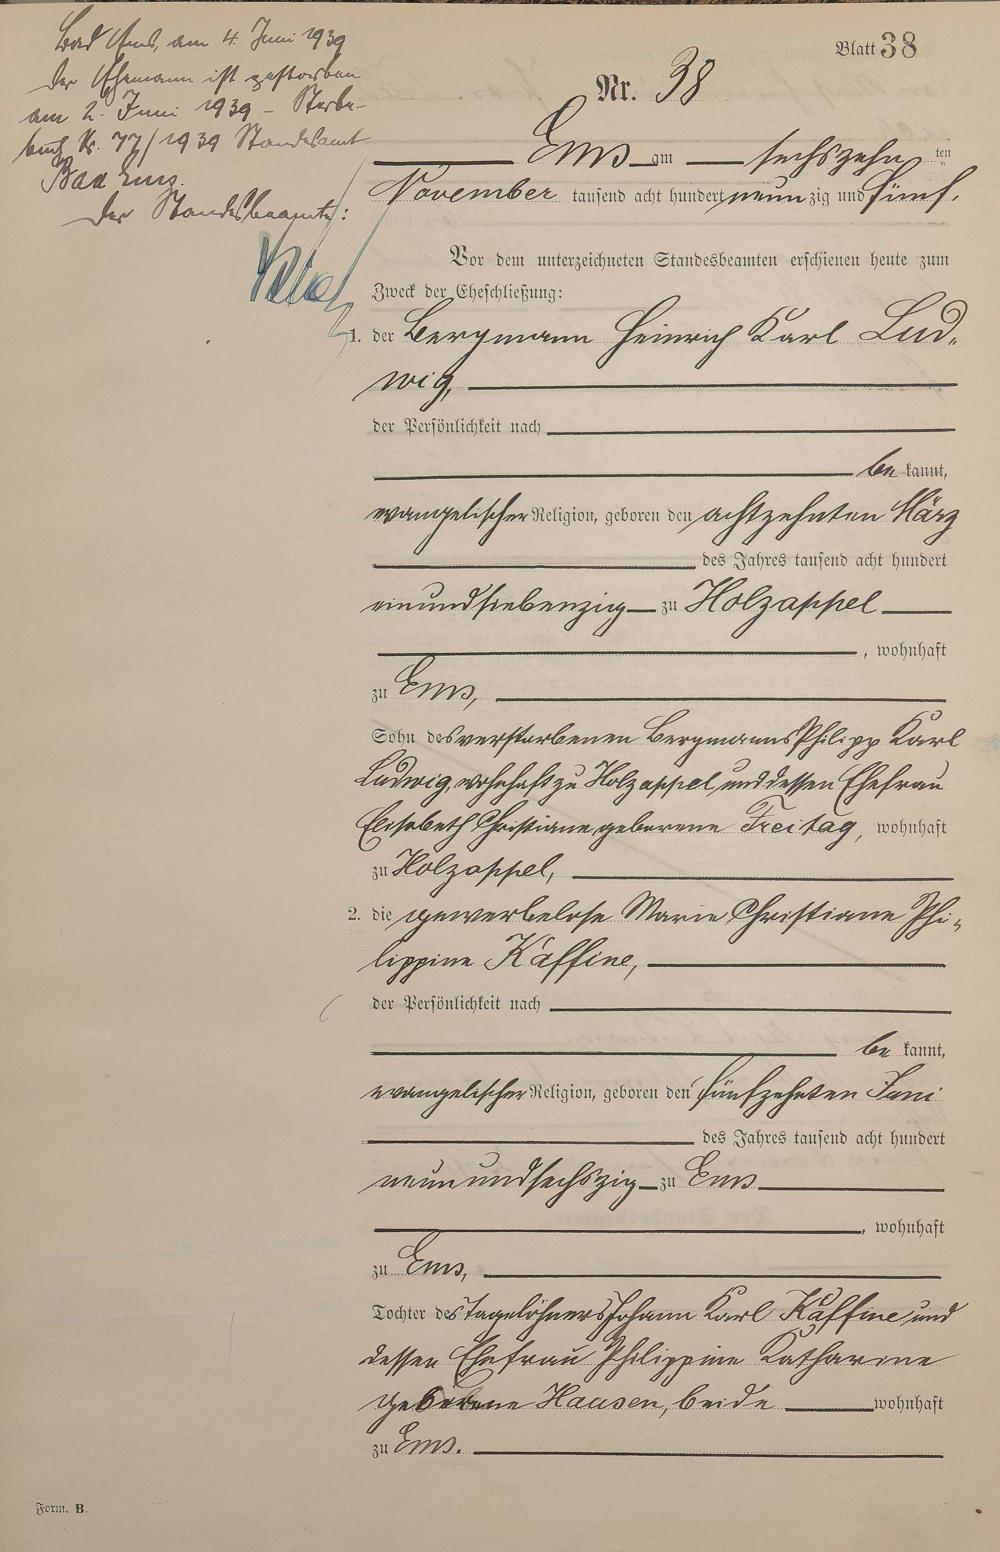 Bad Ems, am 4. Juni 1939
Der Ehemann ist gestorben
am 2. Juni 1939 - Sterbe-
buch Nr. 77/1939 Standesamt
Bad Ems.
Der Standesbeamte:
Blatt 38
Nr. 38
Ems am sechszehn ten
November tausend acht hundert neun zig und fünf.
Vor dem unterzeichneten Standesbeamten erschienen heute zum
Zweck der Eheschließung:
1. der Bergmann Heinrich Karl Lud-
wig,
der Persönlichkeit nach
be kannt,
evangelischer Religion, geboren den achtzehnten März
des Jahres tausend acht hundert
einundsiebenzig zu Holzappel
, wohnhaft
zu Ems,
Sohn des verstorbenen Bergmanns Philipp Karl
Ludwig, wohnhaft zu Holzappel, und dessen Ehefrau
Elisabeth Christiane geborene Freitag, wohnhaft
zu Holzappel,
2. die gewerbelose Marie Christiane Phi-
lippine Kaffine,
der Persönlichkeit nach
be kannt,
evangelischer Religion, geboren den fünfzehnten Juni
des Jahres tausend acht hundert
neunundsechszig zu Ems
, wohnhaft
zu Ems,
Tochter des Tagelöhners Johann Karl Kaffine und
dessen Ehefrau Philippine Katharine
geborene Hausen, beide wohnhaft
zu Ems.
Form. B.